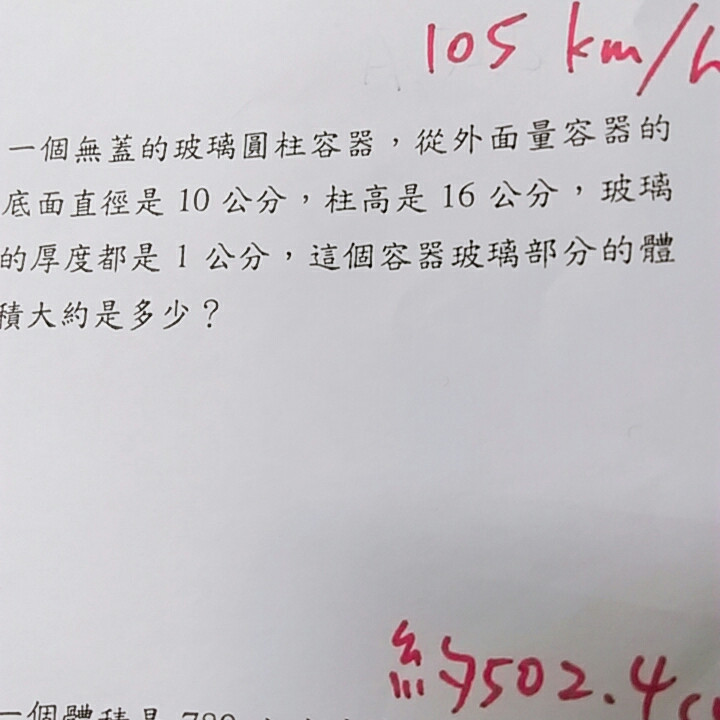 105 km/h
一個無蓋的玻璃圓柱容器，從外面量容器的
底面直徑是 10 公分，柱高是 16 公分，玻璃
的厚度都是 1 公分，這個容器玻璃部分的體
積大約是多少？
約502.4
一個體積是